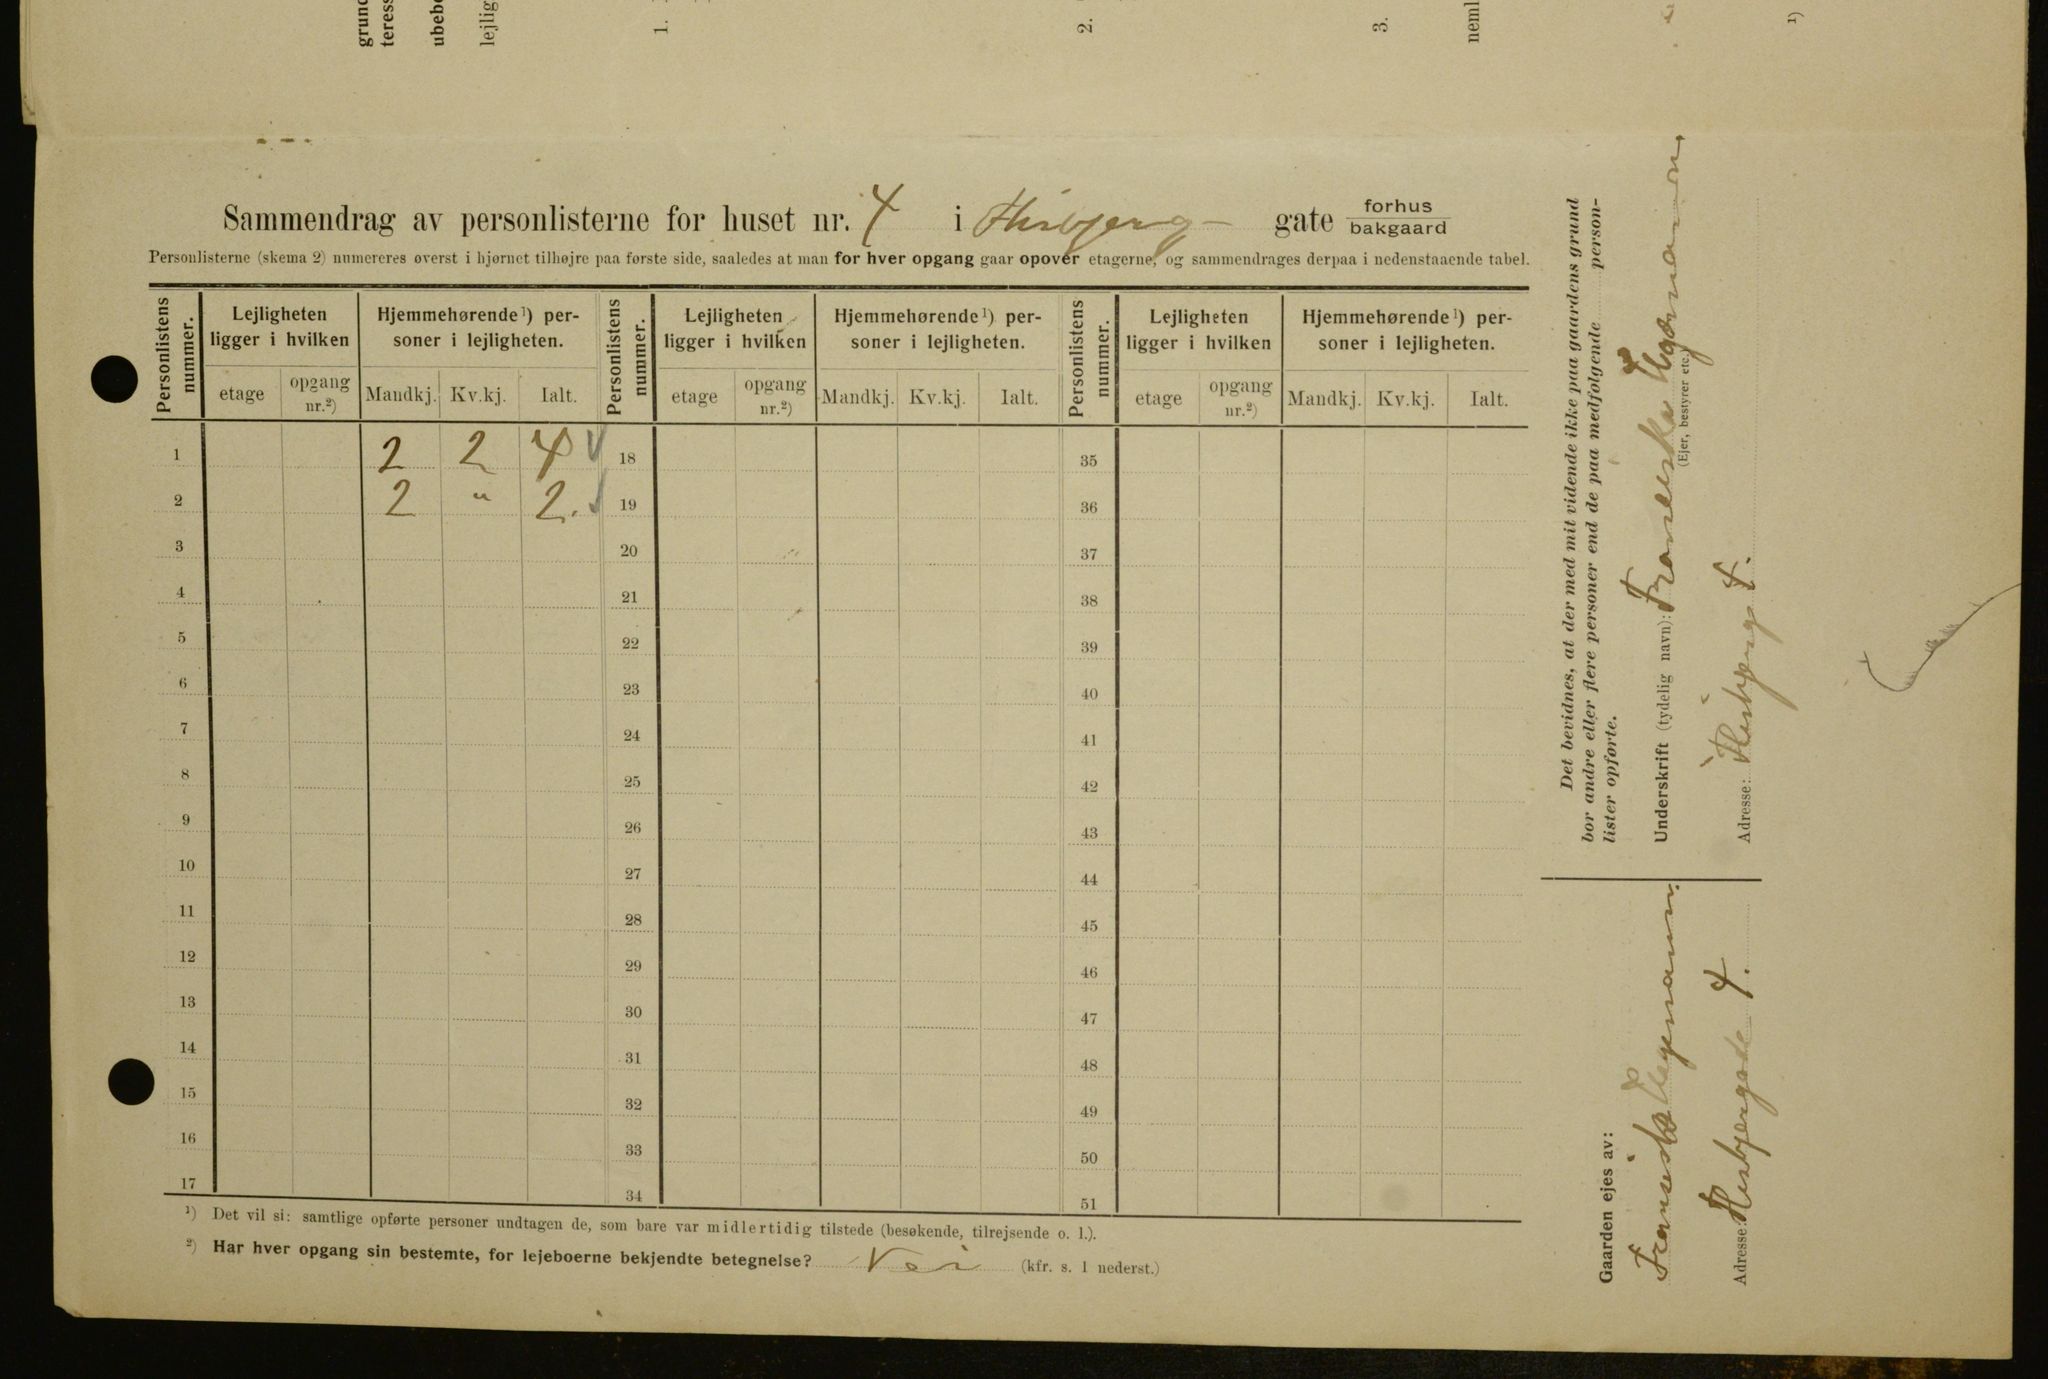 grund
teress
ubebo
lejlig
1.
2.
3.
neml
1)
Sammendrag av personlisterne for huset nr. 4 i Hisbjerg gate forhus
bakgaard
Personlisterne (skema 2) numereres øverst i hjørnet tilhøjre paa første side, saaledes at man for hver opgang gaar opover etagerne, og sammendrages derpaa i nedenstaaende tabel.
Personlistens nummer. Lejligheten ligger i hvilken Hjemmehørende 1) personer i lejligheten. Personlistens nummer. Lejligheten ligger i hvilken Hjemmehørende 1) personer i lejligheten. Personlistens nummer. Lejligheten ligger i hvilken Hjemmehørende 1) personer i lejligheten.
etage opgang nr.2) Mandkj. Kv.kj. Ialt. etage opgang nr.2) Mandkj. Kv.kj. Ialt. etage opgang nr.2) Mandkj. Kv.kj. Ialt.
1 2 2 4 18 35
2 2 " 2. 19 36
3 20 37
4 21 38
5 22 39
6 23 40
7 24 41
8 25 42
9 26 43
10 27 44
11 28 45
12 29 46
13 30 47
14 31 48
15 32 49
16 33 50
17 34 51
1) Det vil si: samtlige opførte personer undtagen de, som bare var midlertidig tilstede (besøkende, tilrejsende o. l.).
2) Har hver opgang sin bestemte, for lejeboerne bekjendte betegnelse? Nei (kfr. s. 1 nederst.)
Det bevidnes, at der med mit vidende ikke paa gaardens grund
bor andre eller flere personer end de paa medfølgende person-
lister opførte.
Underskrift (tydelig navn): Fransiska Hegmann
(Ejer, bestyrer etc.)
Adresse: Hisbjerg 4.
Gaarden ejes av:
Fransiska Hegmann
Adresse: Hisbjerggade 4.